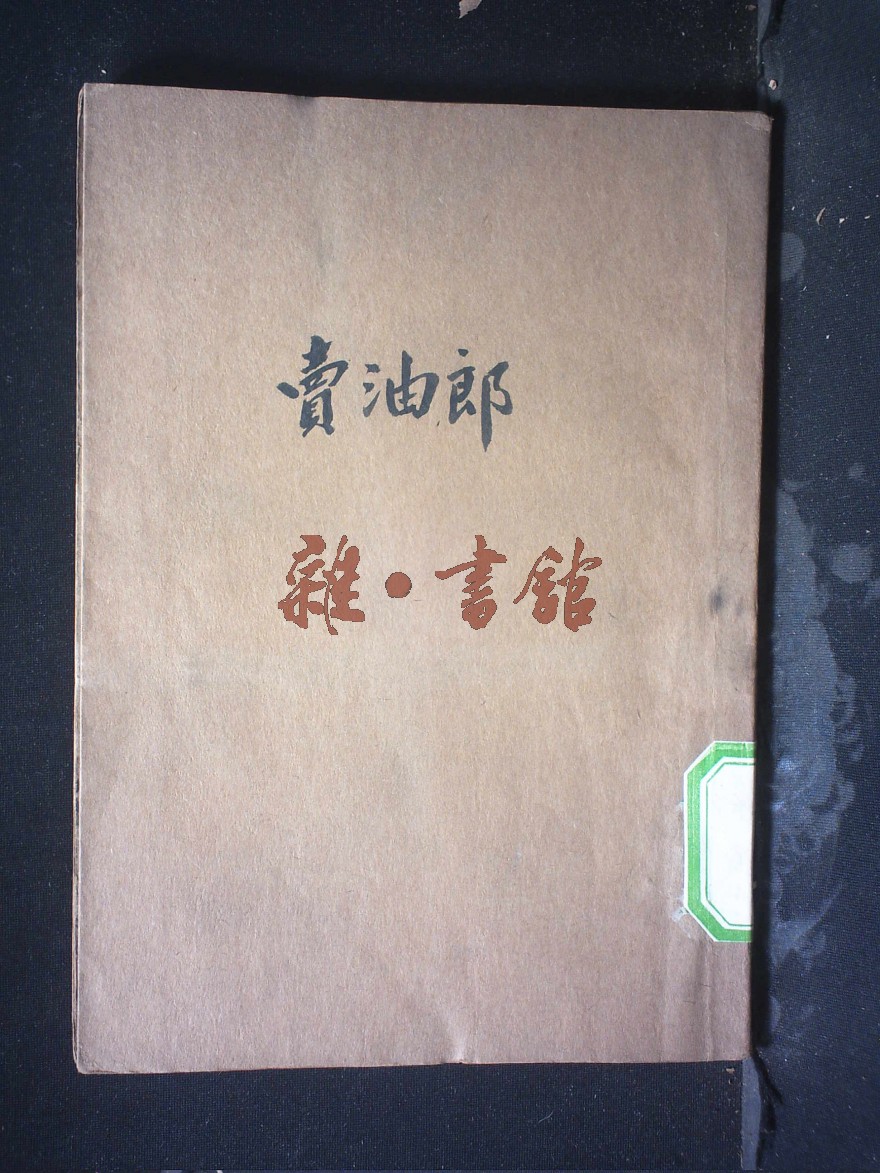 賣油郎
雜·書館